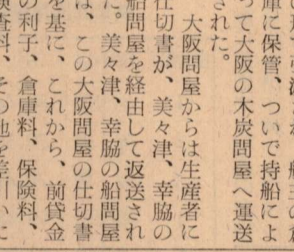 庫に保管、ついで持船によ
って大阪の木炭問屋へ運送
された。
大阪問屋からは生産者に
仕切書が、美々津、幸脇の
船問屋を経由して返送され
た。美々津、幸脇の船問屋
は、この大阪問屋の仕切書
を基に、これから、前貸金
の利子、倉庫料、保険料、
検査料、その他を差引いた